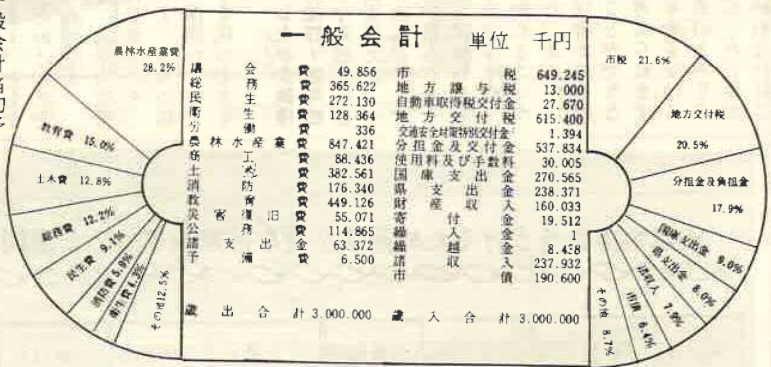 一般会計 単位 千円
農林水産業費 28.2%
教育費 15.0%
土木費 12.8%
総務費 12.2%
民生費 9.1%
消防費 5.9%
衛生費 4.3%
その他 12.5%
議会費 49.856
総務費 365.622
民生費 272.130
衛生費 128.364
労働費 336
農林水産業費 847.421
商工費 88.436
土木費 382.561
消防費 176.340
教育費 449.126
災害復旧費 55.071
公務費 114.865
諸支出金 63.372
予備費 6.500
歳出合計 3.000.000
市税 649.245
地方譲与税 13.000
自動車取得税交付金 27.670
地方交付税 615.400
交通安全対策特別交付金 1.394
分担金及交付金 537.834
使用料及び手数料 30.005
国庫支出金 270.565
県支出金 238.371
財産収入 160.033
寄付金 19.512
繰入金 1
繰越金 8.438
諸収入 237.932
市債 190.600
歳入合計 3.000.000
市税 21.6%
地方交付税 20.5%
分担金及負担金 17.9%
国庫支出金 9.0%
県支出金 8.0%
諸収入 7.9%
市債 6.4%
その他 8.7%